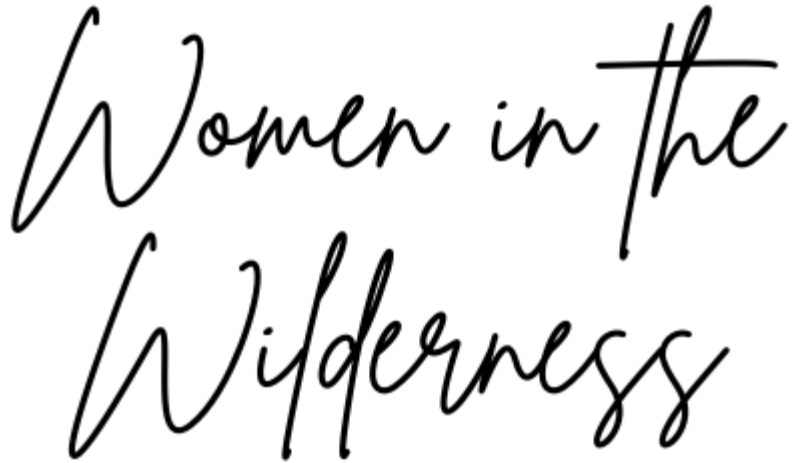 Women in the
Wilderness